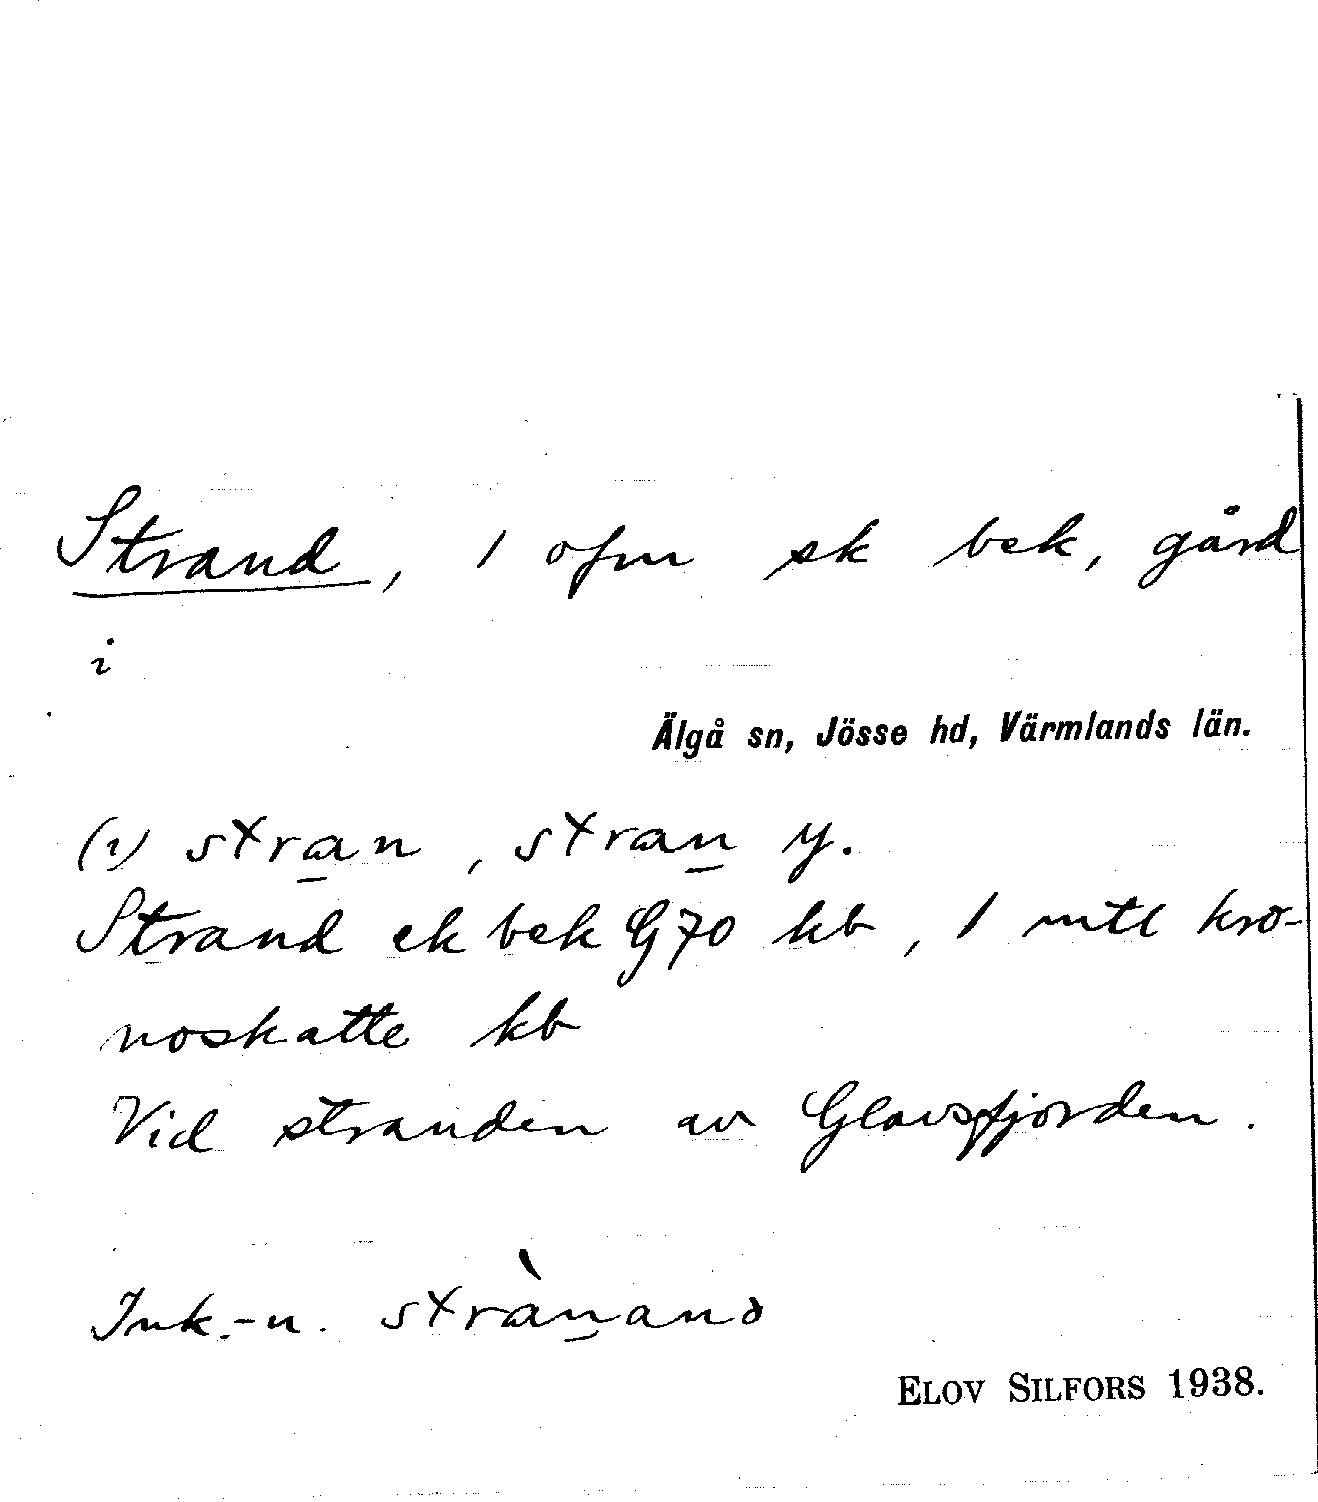 Strand, 1 ofm sk bek, gård
i
Älgå sn, Jösse hd, Värmlands län.
(i) stran, stran y.
Strand ek bek G70 kb, 1 mtl kro-
noskatte kb
Vid stranden av Glavsfjorden.
Ink.-n. strànanə
ELOV SILFORS 1938.